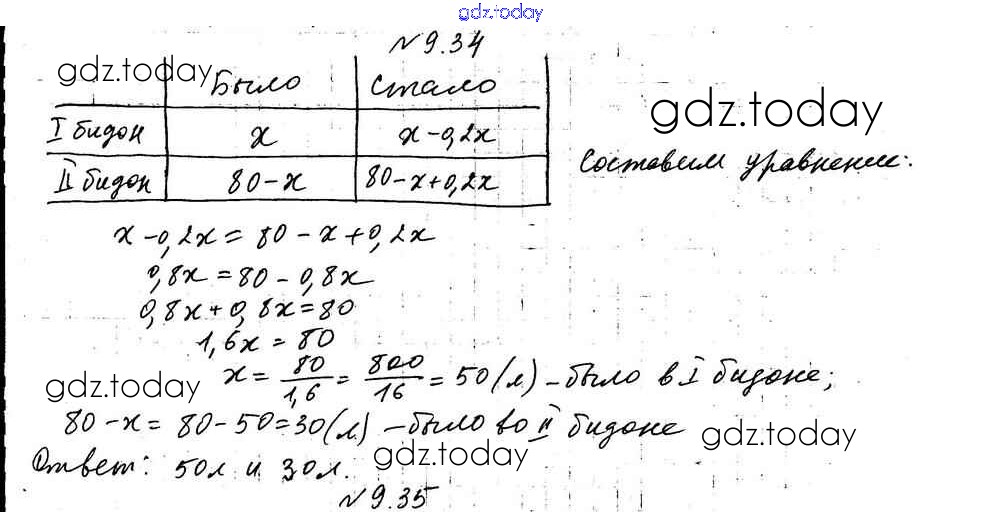 gdz.today
№ 9.34
gdz.today
Было Стало
gdz.today
I бидон x x-0,2x
Составим уравнение:
II бидон 80-x 80-x+0,2x
x-0,2x = 80-x+0,2x
0,8x = 80-0,8x
0,8x+0,8x=80
1,6x = 80
gdz.today
x = 80/1,6 = 800/16 = 50 (л) - было в I бидоне;
80-x = 80-50=30(л) - было во II бидоне
gdz.today
gdz.today
Ответ: 50л и 30л.
№ 9.35